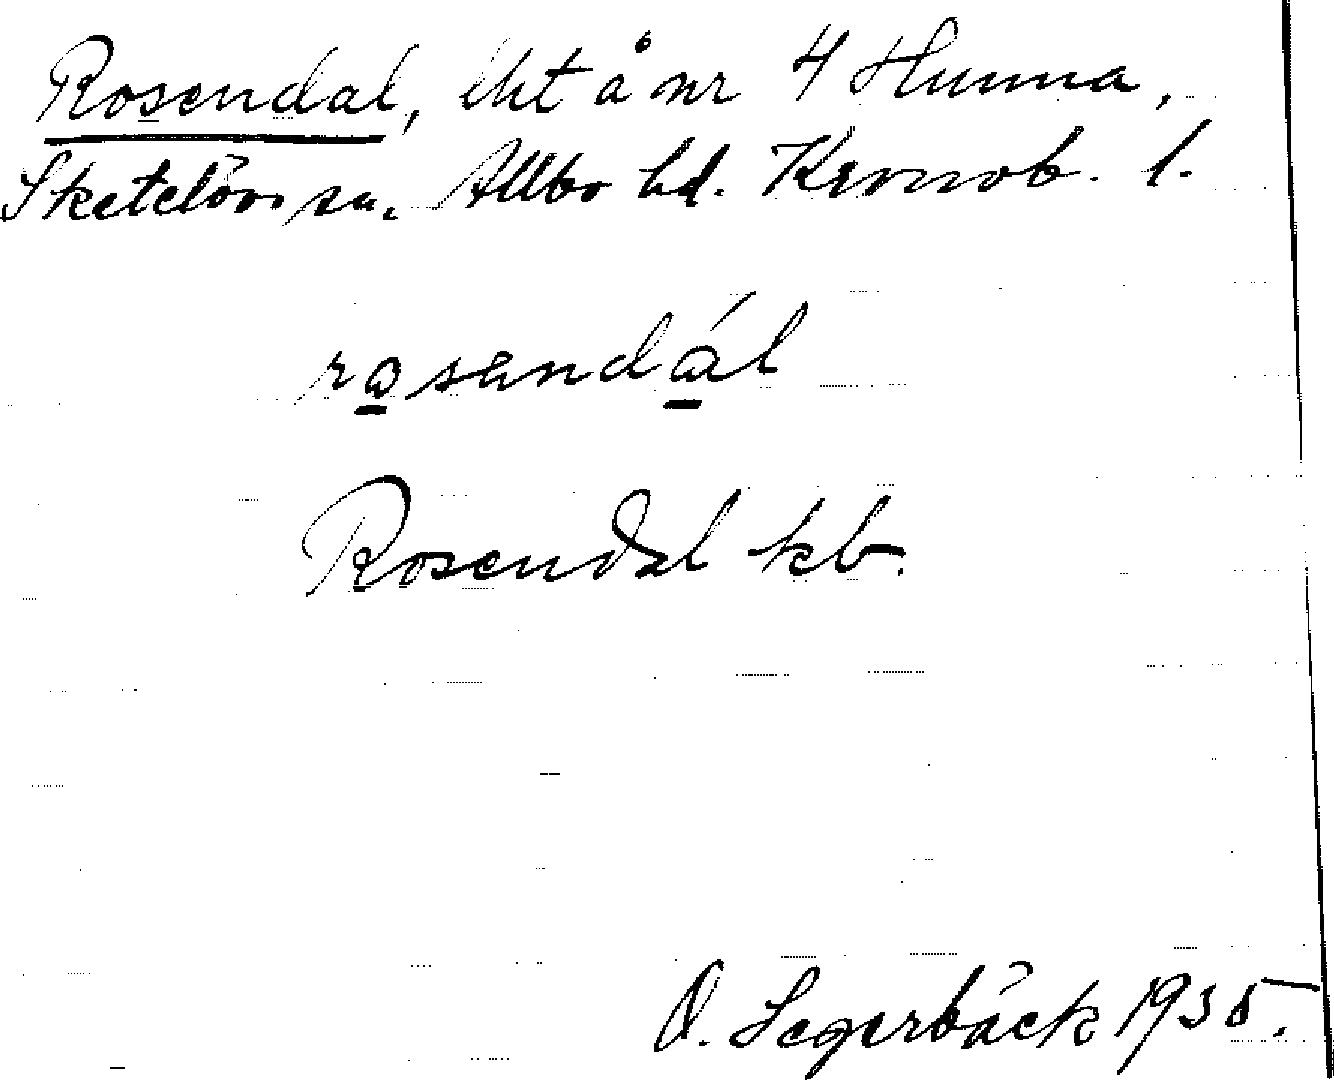 Rosendal, lht å nr 4 Hunna,
Skatelövs sn. Allbo hd. Kronob. l.
rosandál
Rosendal kb.
O. Segerbäck 1935.